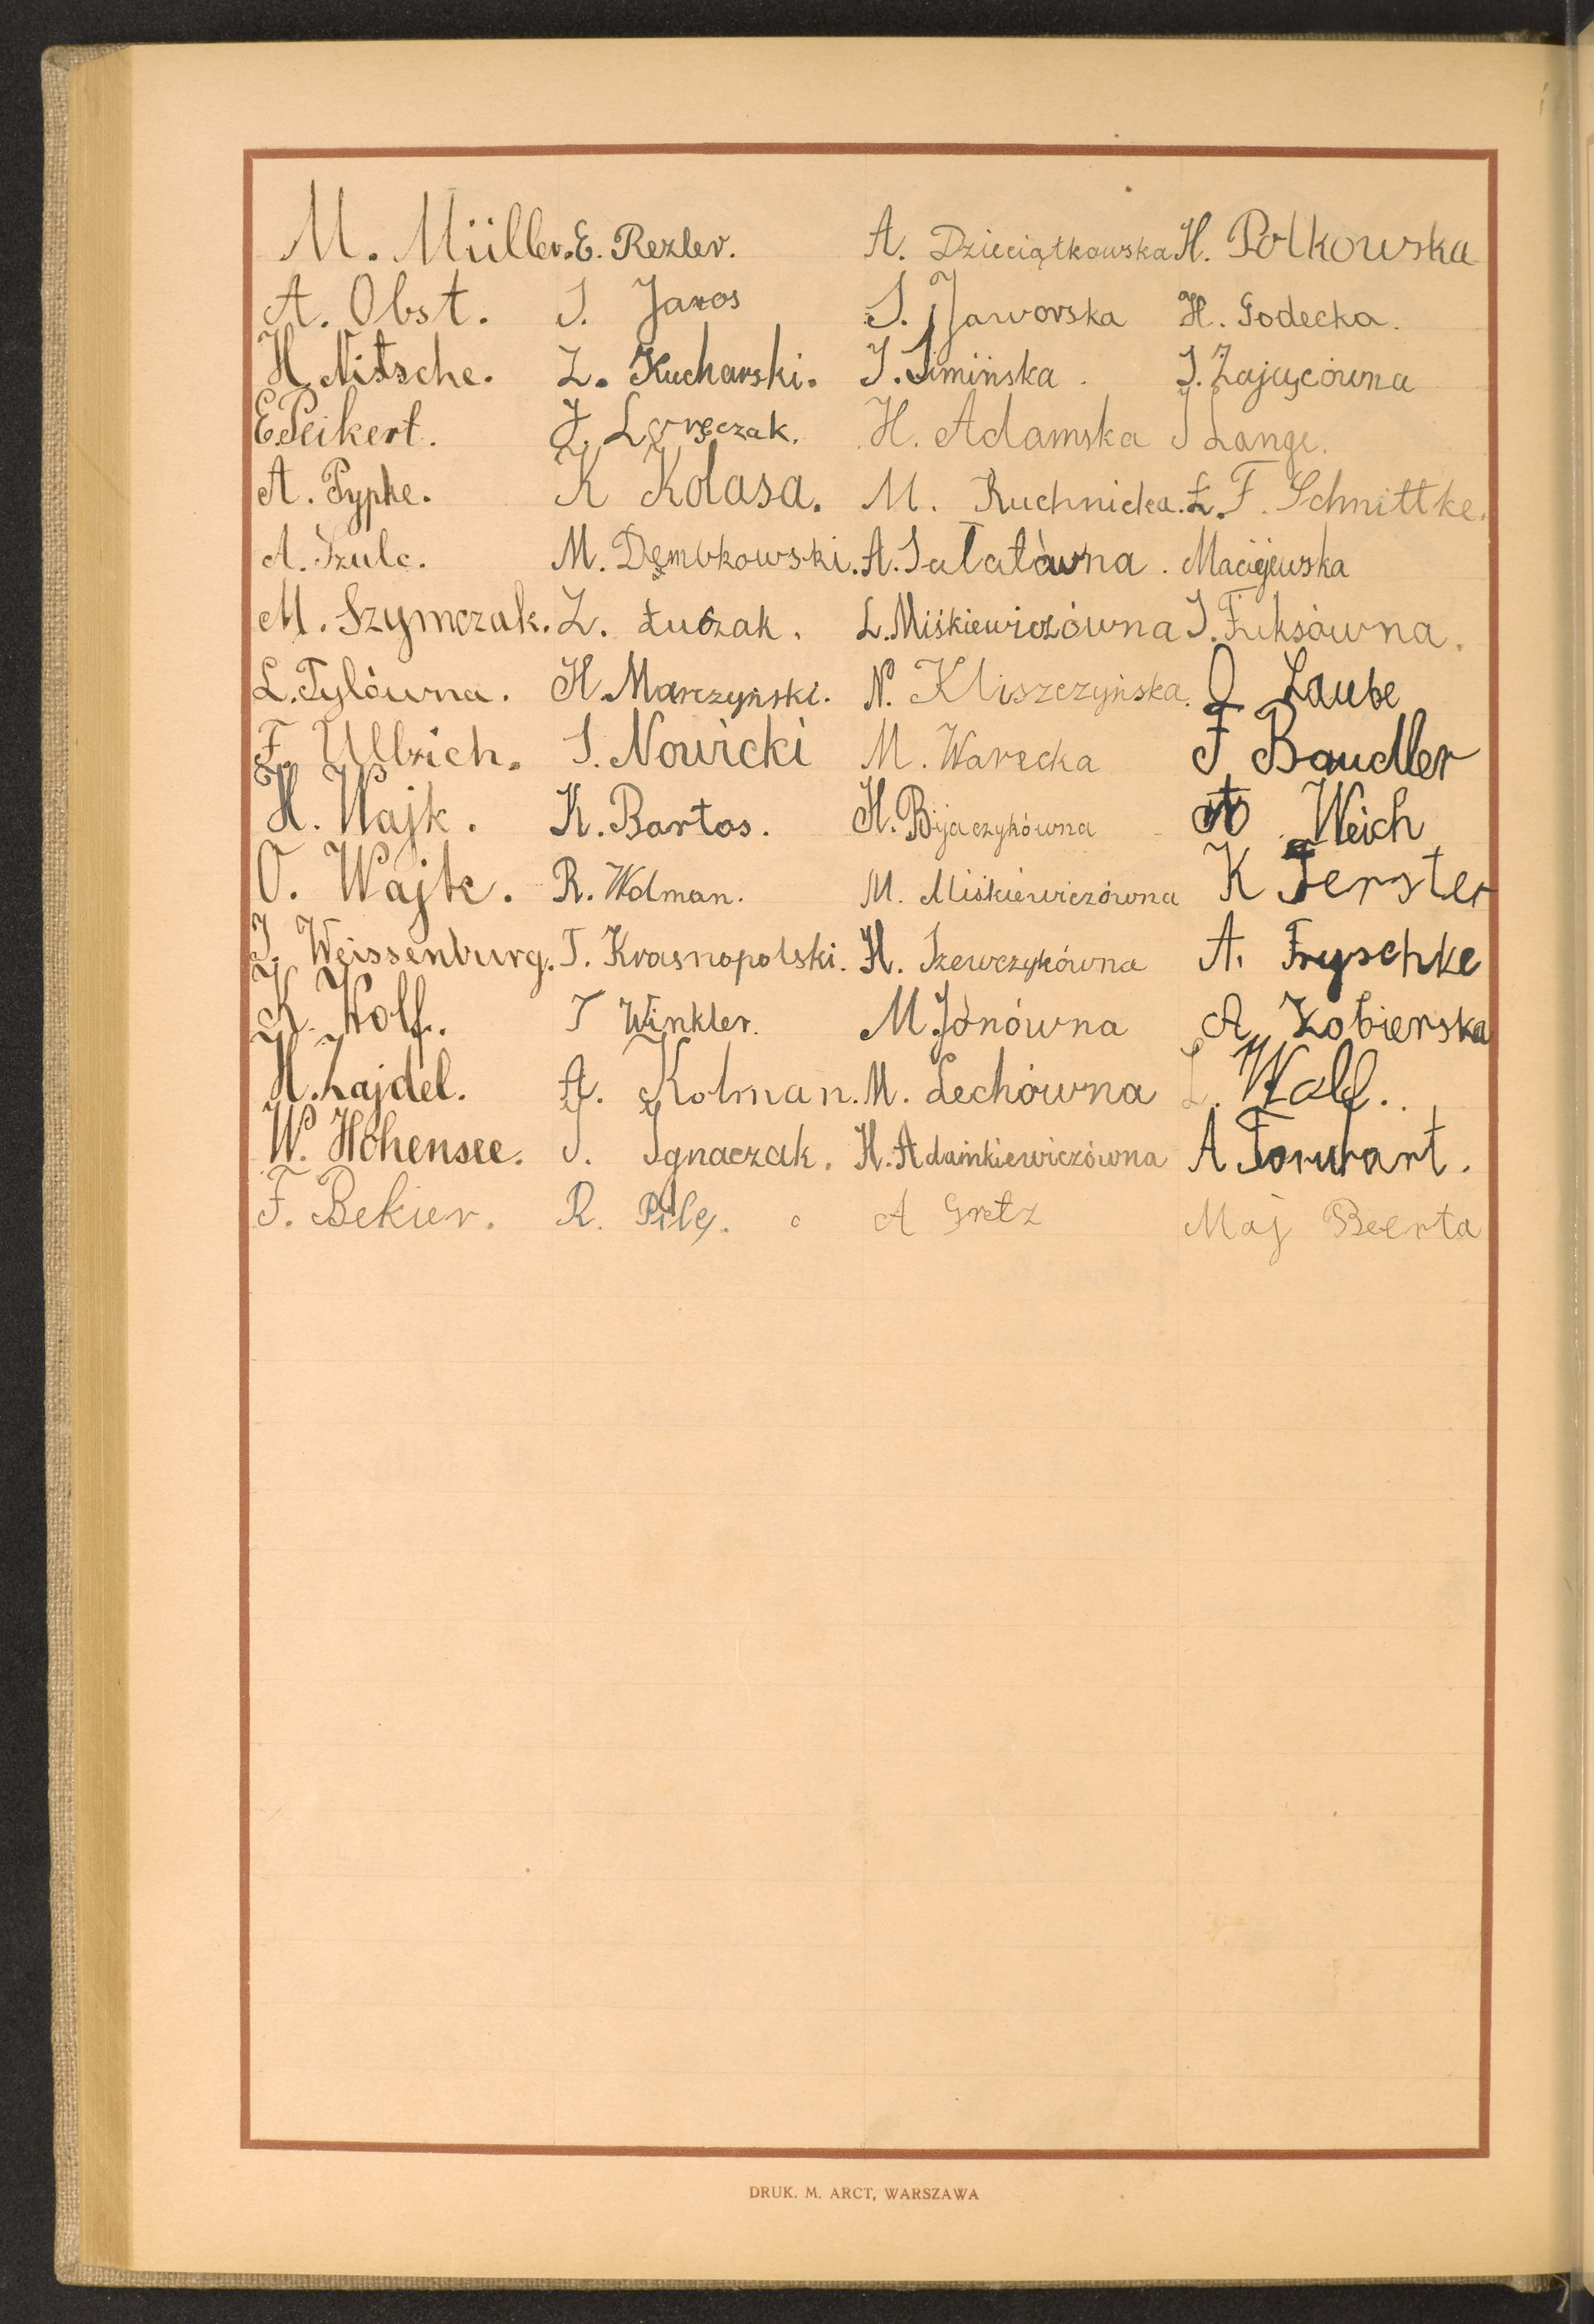 M. Müller. E. Rezler. A. Dzieciątkowska H. Polkowska
A. Obst. S. Jaros S. Jaworska H. Godecka.
H. Nitsche. Z. Kucharski. J. Simińska. J. Zającówna
E. Peikert. J. Loręczak. H. Adamska J Lange.
A. Pypke. K Kolasa. M. Ruchnicka. Ł. F. Schnittke.
A. Szulc. M. Dęmbkowski. A. Sałatówna. Maciejewska
M. Szymczak. Z. Łuczak. L. Miśkiewiczówna J. Fuksówna.
L. Tylówna. H. Marczyński. N. Kliszczyńska. O Laube
F. Ullrich. S. Nowicki M. Warecka F Baudler
H. Wajk. K. Bartos. H. Bijaczykówna Weich
O. Wajk. R. Wolman. M. Miśkiewiczówna K Ferster
J. Weissenburg. T. Krasnopolski. H. Szewczykówna A. Fryschke
K. Wolf. T Winkler. M. Jonówna A Kobierska
H. Zajdel. A. Kolman. M. Lechówna L. Wolf.
W. Hohensee. J. Ignaczak. H. Adamkiewiczówna A Forwart.
F. Bekier. R. Pilc. A Gretz Maj Beerta
DRUK. M. ARCT, WARSZAWA